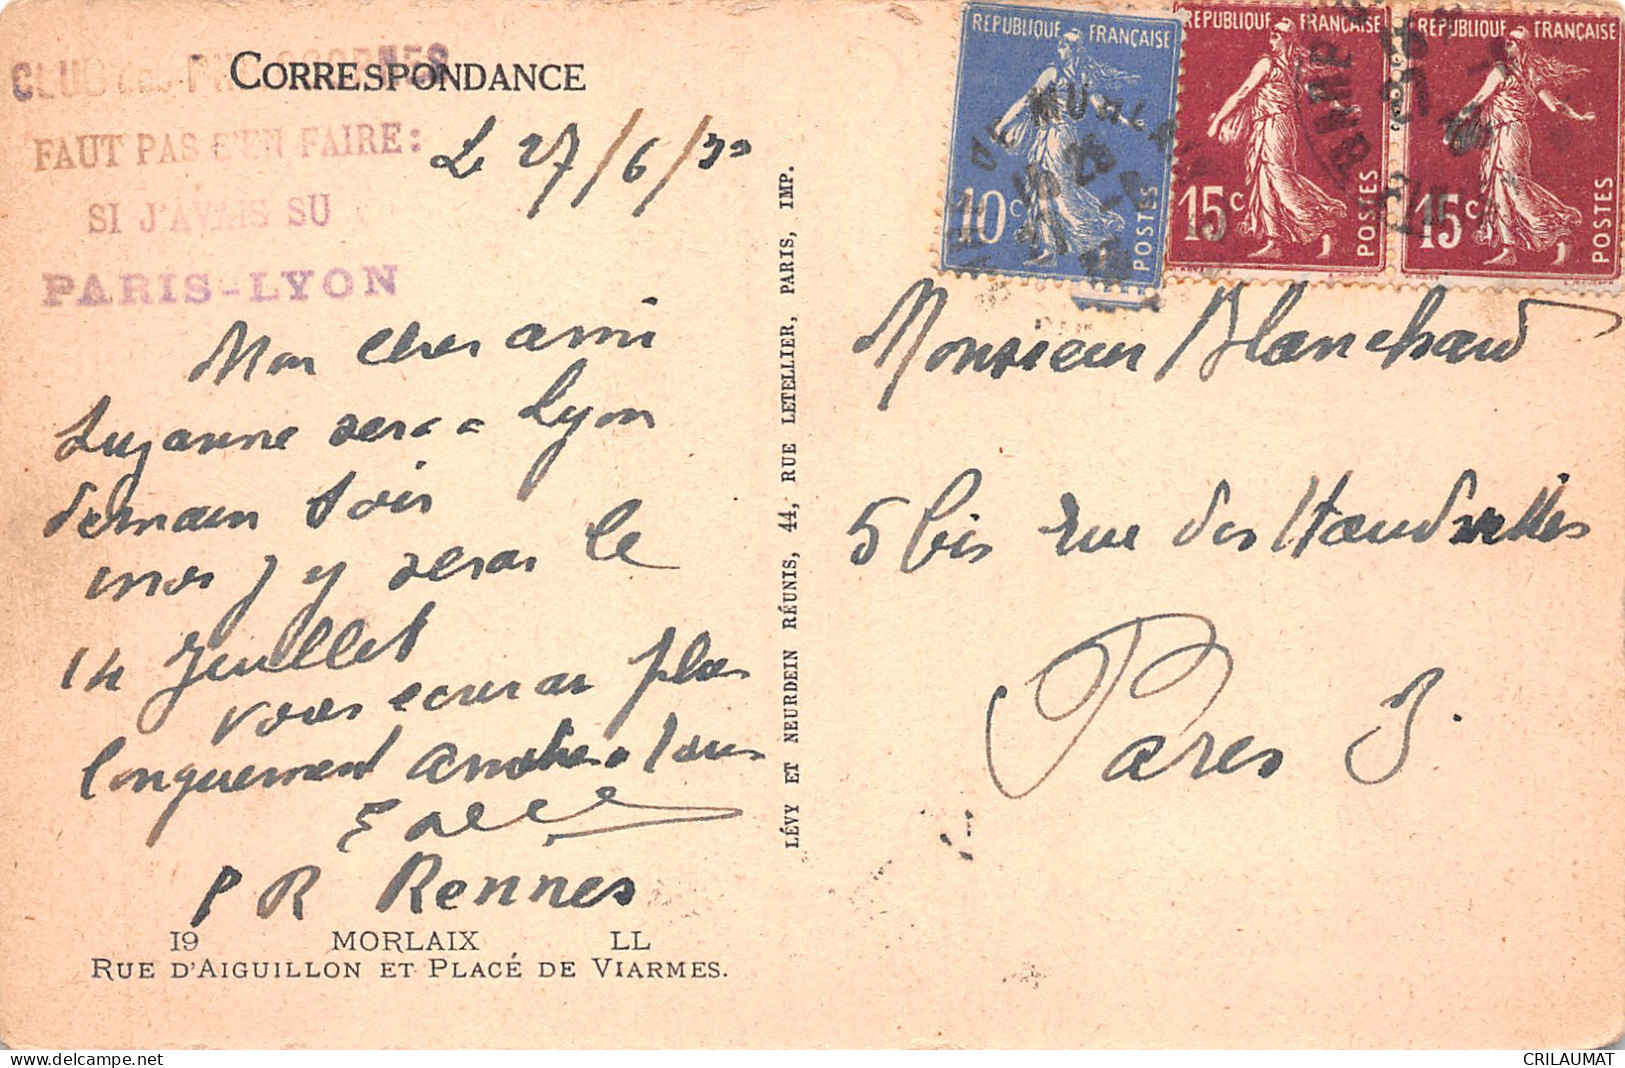 CORRESPONDANCE
CLUB des
FAUT PAS S'EN FAIRE:
SI J'AVAIS SU
PARIS-LYON
Le 27/6/30
Mon cher ami
Suzanne sera a Lyon
demain soir
moi j y serai le
14 Juillet
vous ecrirai plus
longuement amities a tous
P R Rennes
19 MORLAIX LL
RUE D'AIGUILLON ET PLACÉ DE VIARMES.
LÉVY ET NEURDEIN RÉUNIS, 44, RUE LETELLIER, PARIS, IMP.
REPUBLIQUE FRANÇAISE
10c
POSTES
REPUBLIQUE FRANÇAISE
15c
POSTES
REPUBLIQUE FRANÇAISE
15c
POSTES
Monsieur Blanchard
5 bis rue des Haudriettes
Paris 3.
CRILAUMAT